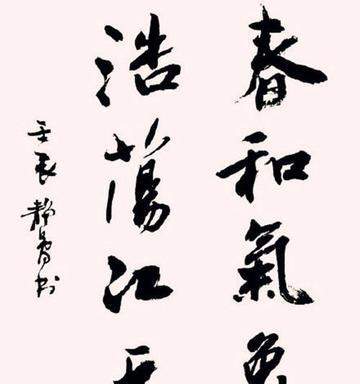 春和氣
浩蕩江
壬辰 靜 书